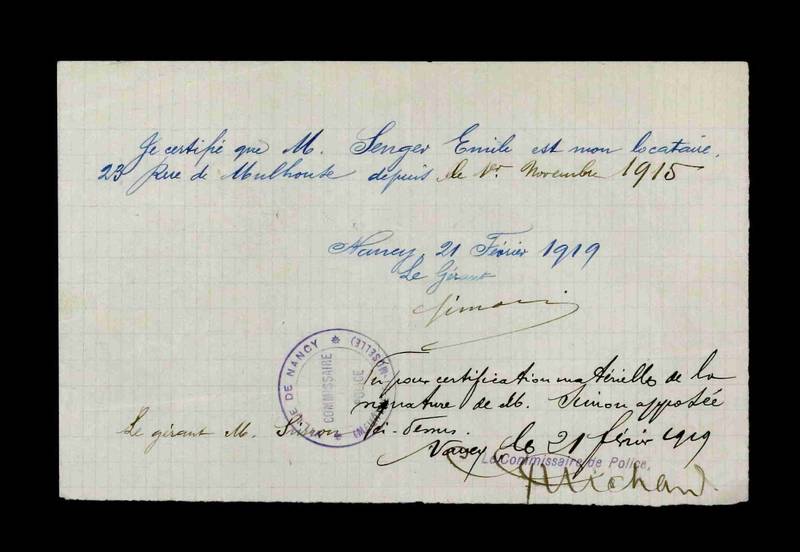 Je certifie que M. Senger Emile est mon locataire,
23 Rue de Mulhouse depuis le 1er Novembre 1915
Nancy, 21 Février 1919
Le Gérant
Simon
Vu pour certification matérielle de la
signature de M. Simon apposée
ci-dessus.
Le gérant M. Simon
Nancy le 21 février 1919
Le Commissaire de Police,
MAIRIE DE NANCY
(MEURTHE-&-MOSELLE)
COMMISSAIRE
POLICE